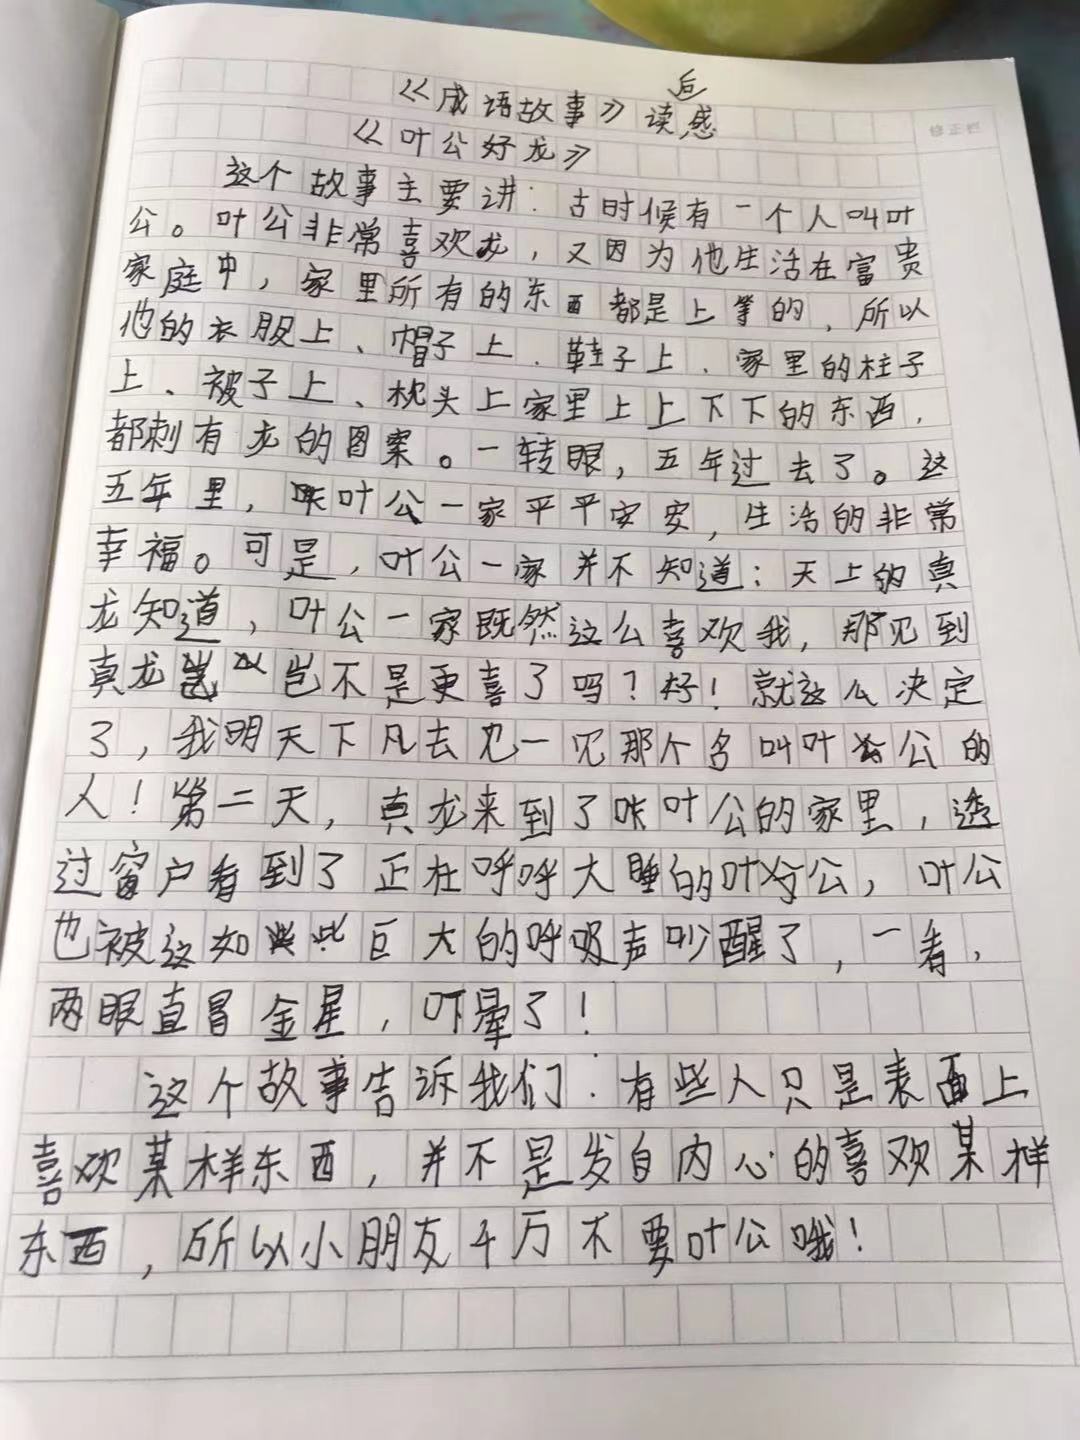 《成语故事》读后感
修正栏
《叶公好龙》
这个故事主要讲：古时候有一个人叫叶
公。叶公非常喜欢龙，又因为他生活在富贵
家庭中，家里所有的东西都是上等的，所以
他的衣服上、帽子上、鞋子上、家里的柱子
上、被子上、枕头上家里上上下下的东西，
都刺有龙的图案。一转眼，五年过去了。这
五年里，叶公一家平平安安，生活的非常
幸福。可是，叶公一家并不知道：天上的真
龙知道，叶公一家既然这么喜欢我，那见到
真龙岂不是更喜了吗？好！就这么决定
了，我明天下凡去见一见那个名叫叶公的
人！第二天，真龙来到了叶公的家里，透
过窗户看到了正在呼呼大睡的叶公，叶公
也被这如此巨大的呼吸声吵醒了，一看，
两眼直冒金星，吓晕了！
这个故事告诉我们：有些人只是表面上
喜欢某样东西，并不是发自内心的喜欢某样
东西，所以小朋友千万不要叶公哦！